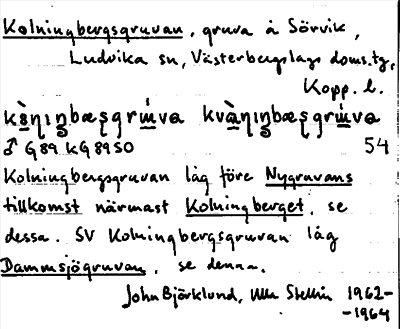 Kolningbergsgruvan, gruva å Sörvik,
Ludvika sn, Västerbergslags doms.tg,
Kopp. l.
54
Kolningbergsgruvan låg före Nygruvans
tillkomst närmast Kolningberget, se
dessa. SV Kolningbergsgruvan låg
Dammsjögruvan, se denna.
John Björklund, 1962-
-1964